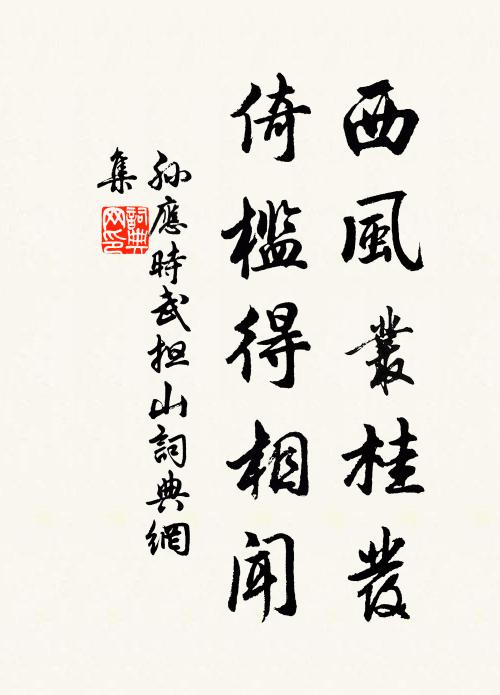 西風叢桂發
倚檻得相聞
孫應時武担山詞典網
集
詞典网印